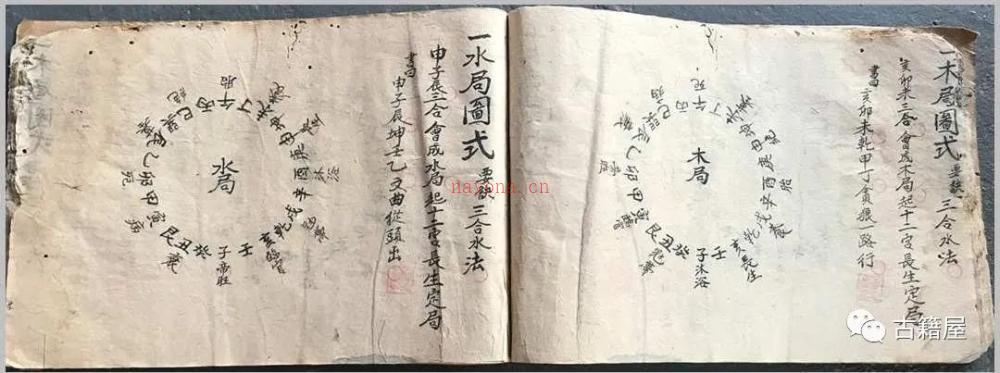 一木局圖式 要訣 三合水法
亥卯未三合會成木局起十二宮長生定局
書曰 亥卯未乾甲丁貪狼一路行
木局
壬
子沐浴
癸
丑
艮
寅
甲
卯
乙
辰
巽
巳
丙
午死
丁
未
坤
申
庚
酉胎
辛
戌
養
乾
亥長生
一水局圖式 要訣 三合水法
申子辰三合會成水局起十二宮長生定局
書曰 申子辰坤壬乙文曲從頭出
水局
壬
子帝旺
癸
丑
艮
寅
甲
卯
死
乙
辰
巽
巳
絕
丙
午胎
丁
未
養
坤
申
庚
酉
沐浴
辛
戌
冠帶
乾
亥臨官
nayona.cn
古籍屋